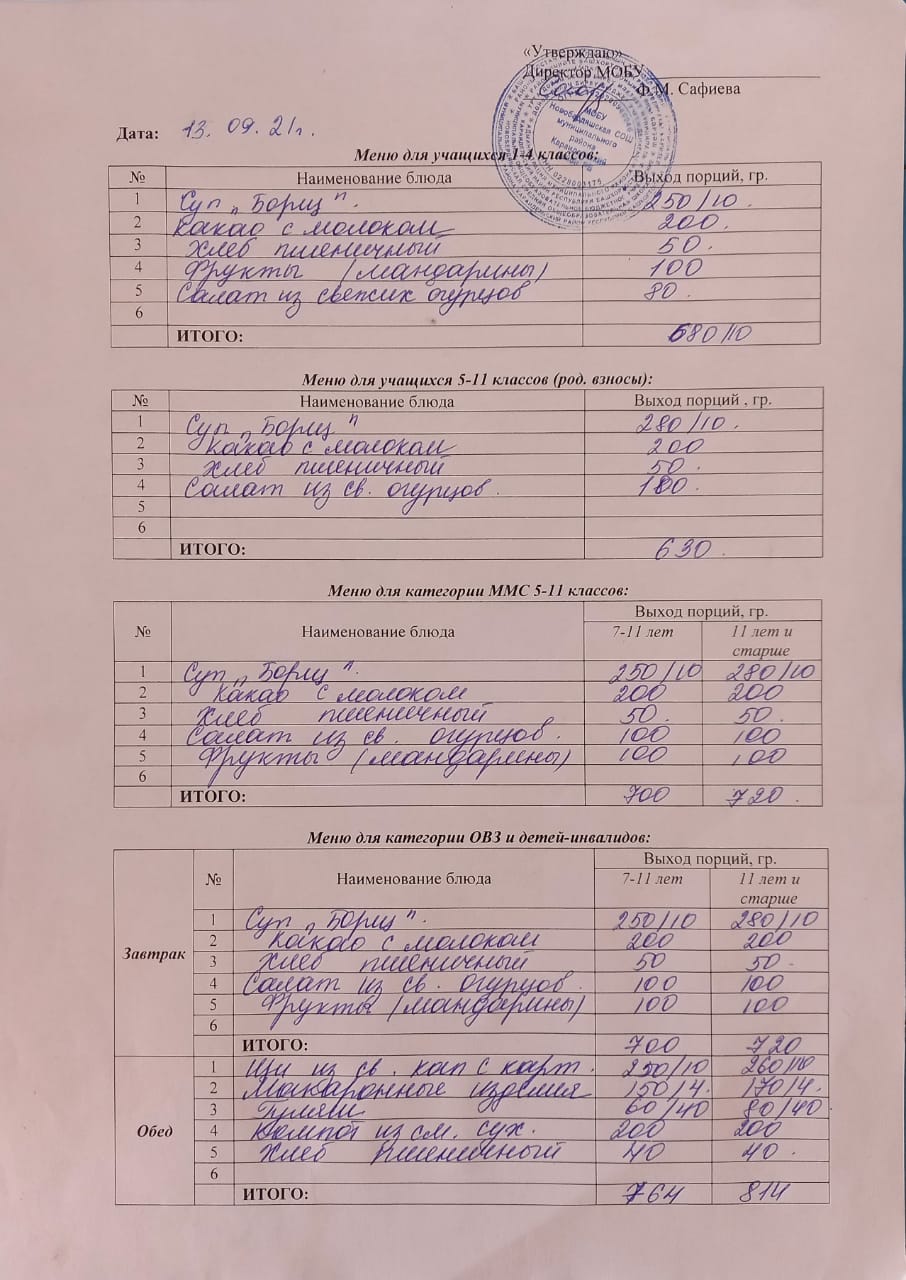 «Утверждаю»
Директор МОБУ
Ф.М. Сафиева
МОБУ
Новобардяшская СОШ
муниципального
района
Караидельский
Дата: 13. 09. 21г.
Меню для учащихся 1-4 классов:
№ Наименование блюда Выход порций, гр.
1 Суп „Борщ". 250/10.
2 Какао с молоком 200.
3 Хлеб пшеничный 50.
4 Фрукты (мандарины) 100
5 Салат из свежих огурцов 80.
6
ИТОГО: 680/10
Меню для учащихся 5-11 классов (род. взносы):
№ Наименование блюда Выход порций , гр.
1 Суп „Борщ" 280/10.
2 Какао с молоком 200
3 Хлеб пшеничный 50.
4 Салат из св. огурцов. 100.
5
6
ИТОГО: 630.
Меню для категории ММС 5-11 классов:
№ Наименование блюда Выход порций, гр.
7-11 лет 11 лет и
старше
1 Суп „Борщ". 250/10 280/10
2 Какао с молоком 200 200
3 Хлеб пшеничный 50. 50.
4 Салат из св. огурцов. 100 100
5 Фрукты (мандарины) 100 100
6
ИТОГО: 700 720.
Меню для категории ОВЗ и детей-инвалидов:
№ Наименование блюда Выход порций, гр.
7-11 лет 11 лет и
старше
Завтрак
1 Суп „Борщ". 250/10 280/10
2 Какао с молоком 200 200
3 Хлеб пшеничный 50 50.
4 Салат из св. огурцов. 100 100
5 Фрукты (мандарины) 100 100
6
ИТОГО: 700 720
Обед
1 Щи из св. кап с карт. 250/10 260/10
2 Макаронные изделия 150/4. 170/4.
3 Гуляш 60/40 80/40.
4 Компот из см. сух. 200 200
5 Хлеб пшеничный 40 40.
6
ИТОГО: 764 814